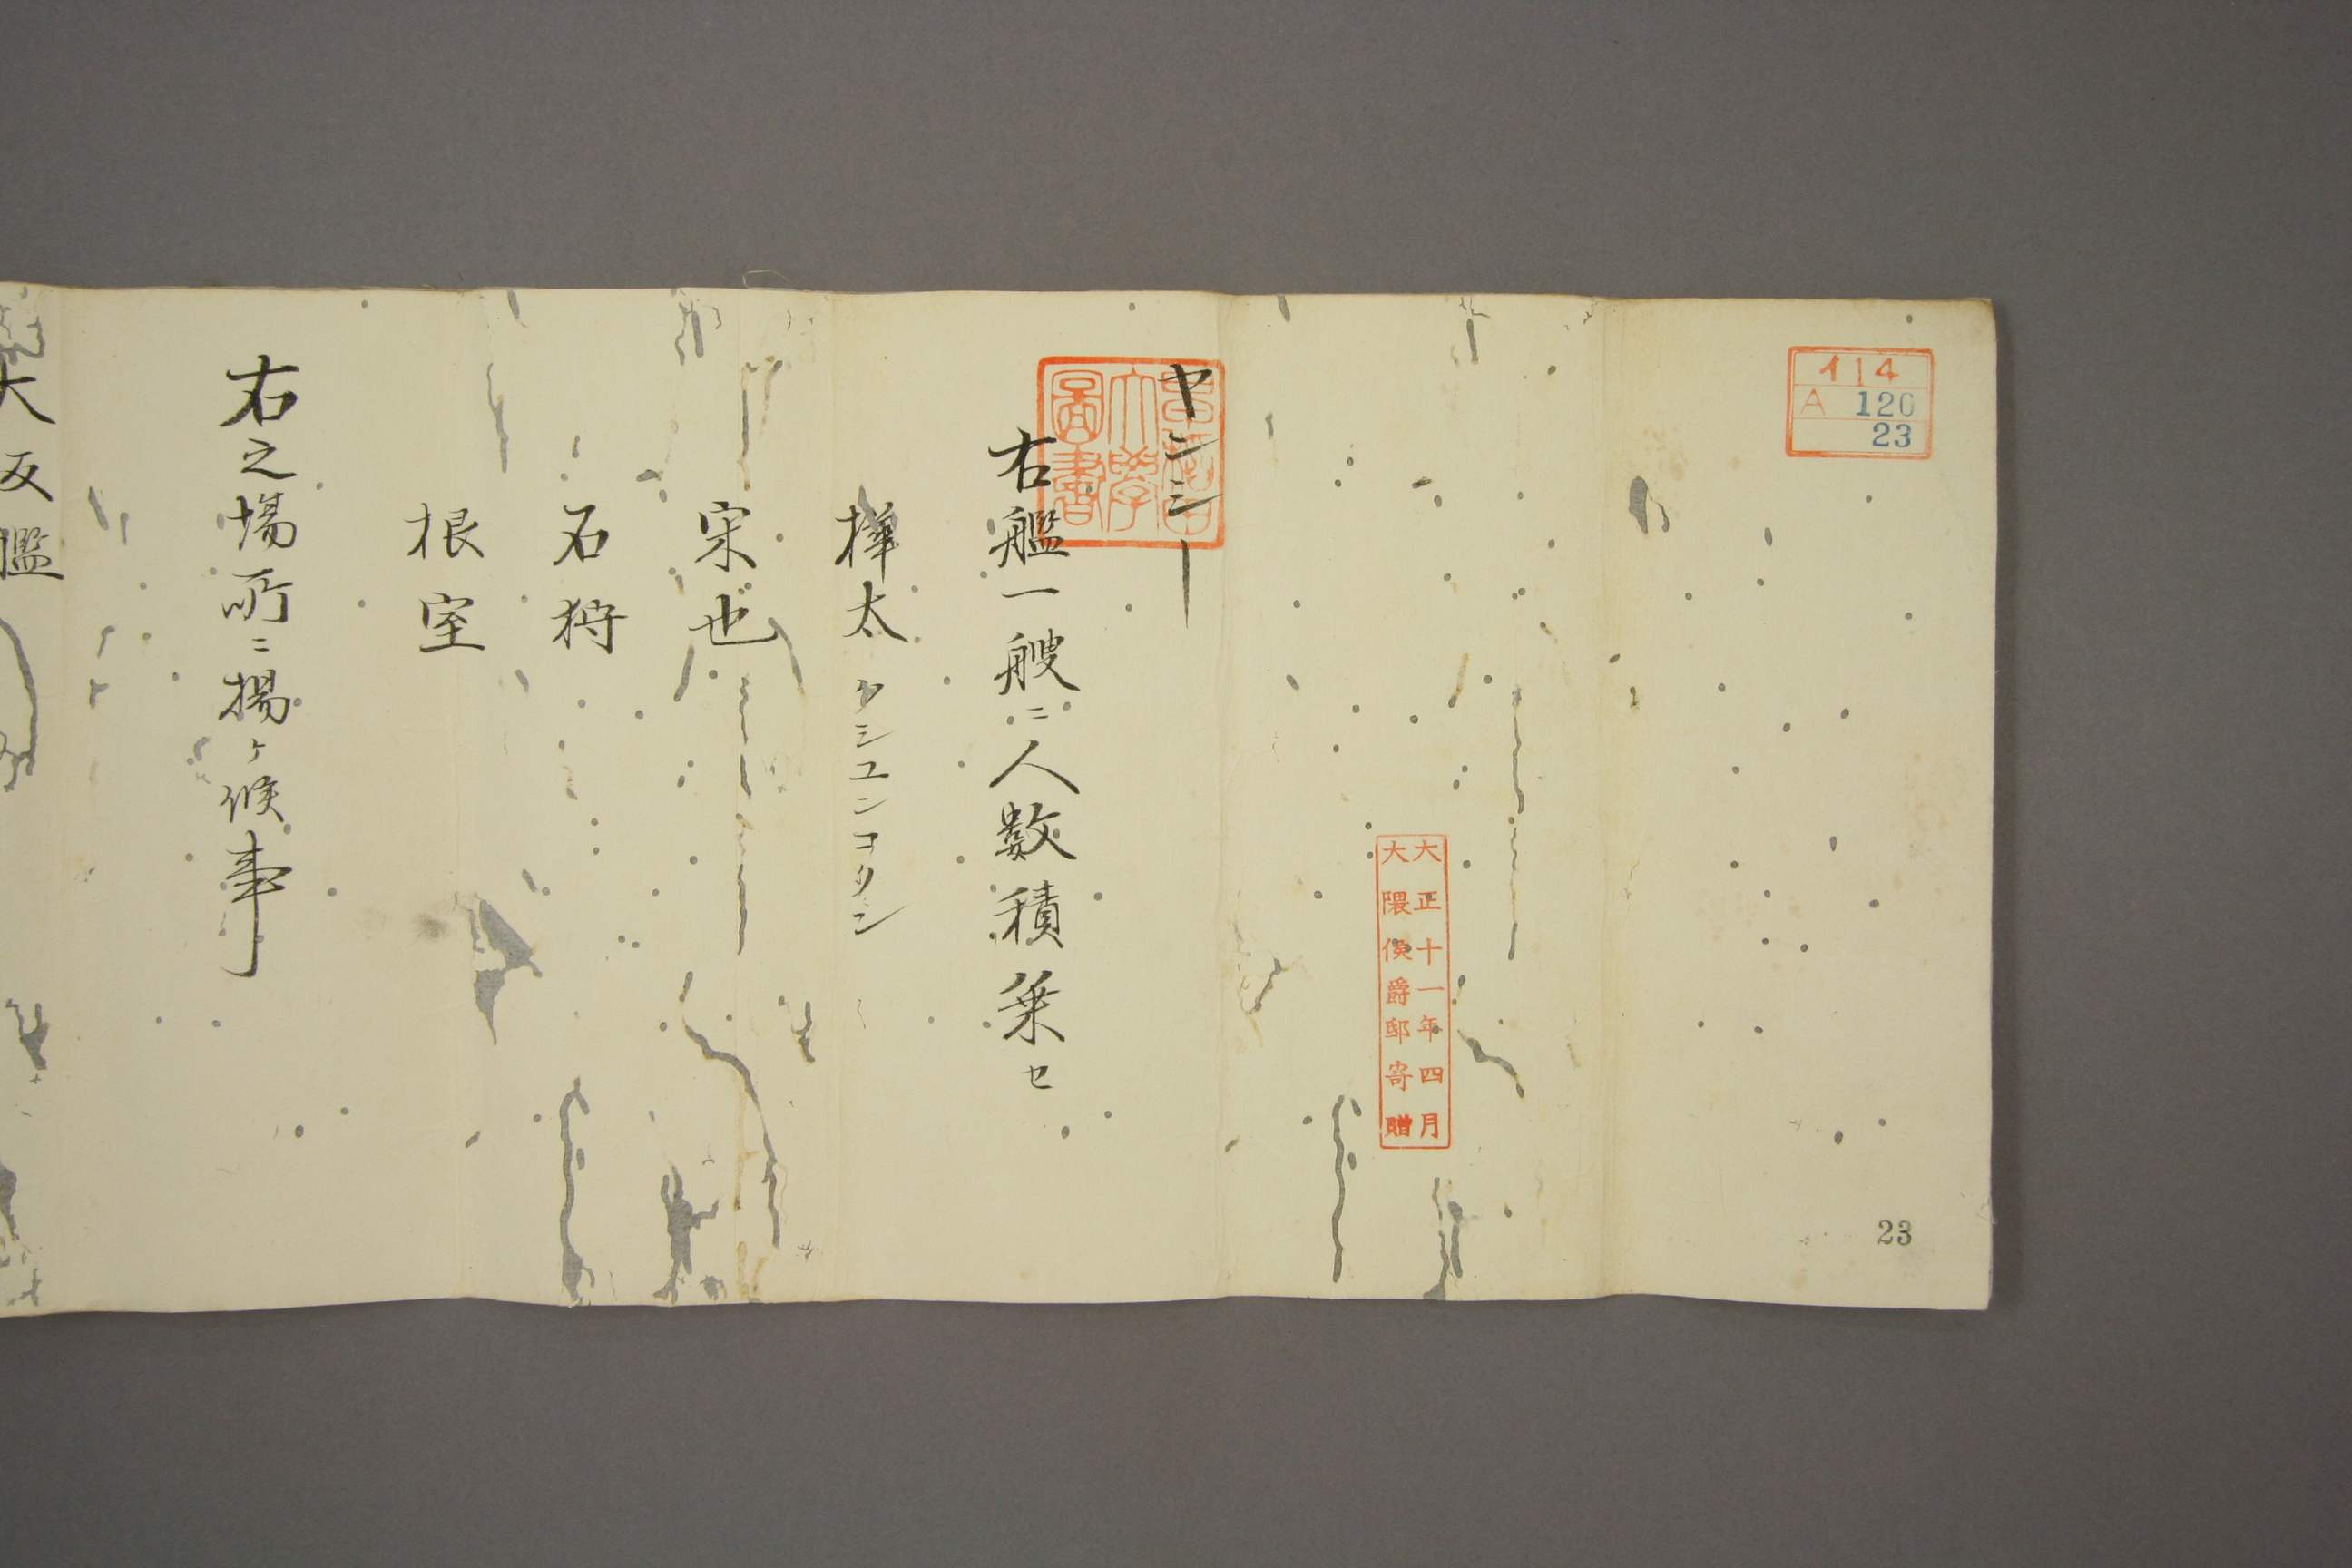 イ14
A 120
23
大正十一年四月
大隈侯爵邸寄贈
早稲田
大學
圖書
ヤンシー
右艦一艘ニ人数積乗セ
樺太 クシユンコタン
宗也
石狩
根室
右之場所ニ揚ケ候事
大反艦
23